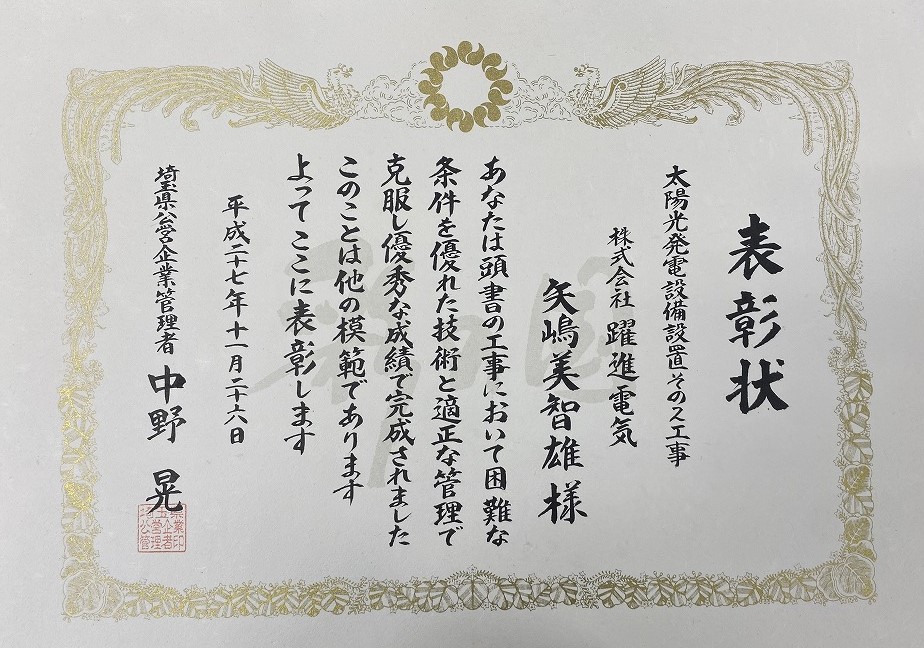 表彰状
太陽光発電設備設置その2工事
株式会社 躍進電気
矢嶋美智雄様
あなたは頭書の工事において困難な
条件を優れた技術と適正な管理で
克服し優秀な成績で完成されました
このことは他の模範であります
よってここに表彰します
平成二十七年十一月二十六日
埼玉県公営企業管理者 中野 晃
彩の国